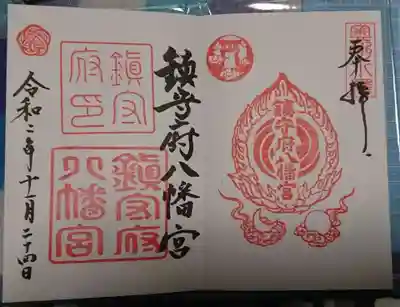 奉拝
鎮守府八幡宮
鎮守府八幡宮
鎮守
府印
鎮守府
八幡宮
令和二年十一月二十四日